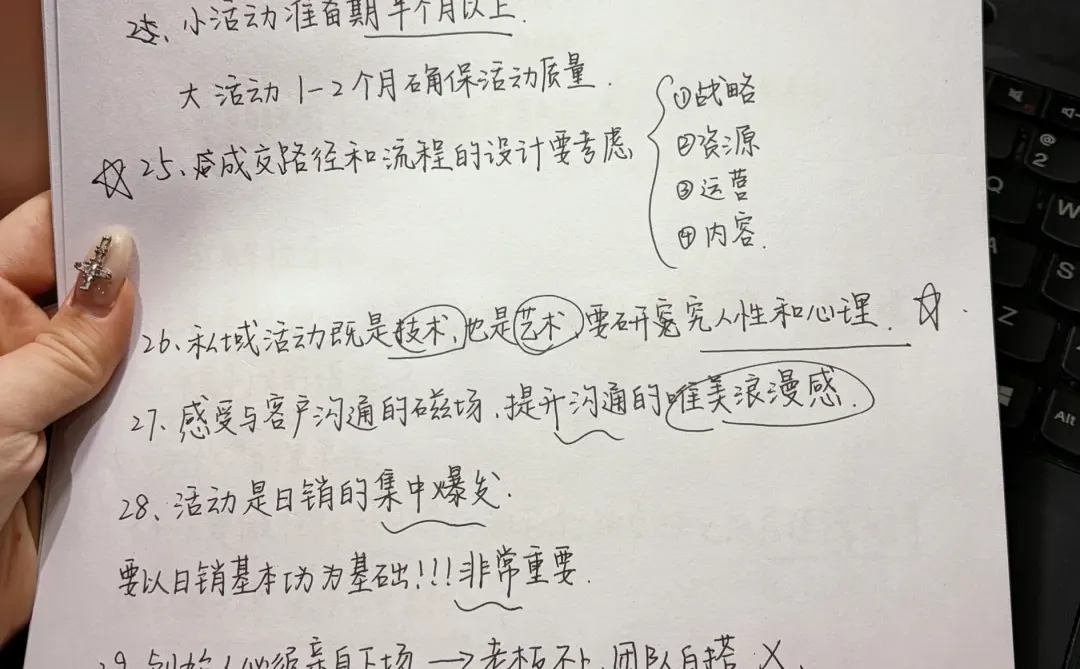 小活动准备期半个月以上.
大活动1-2个月确保活动质量.
25、成交路径和流程的设计要考虑
①战略
②资源
③运营
④内容.
26、私域活动既是技术,也是艺术,要研究人性和心理.
27、感受与客户沟通的磁场,提升沟通的唯美浪漫感.
28、活动是日销的集中爆发.
要以日销基本功为基础!!!非常重要.
29 创始人必须亲自下场→老板不上,团队白搭 X.
@
2
Q
W
A
S
Z
Alt